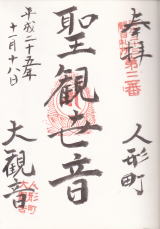 奉拝
第三番
人形町
聖観世音
大観音
人形町
平成二十五年
十一月十八日